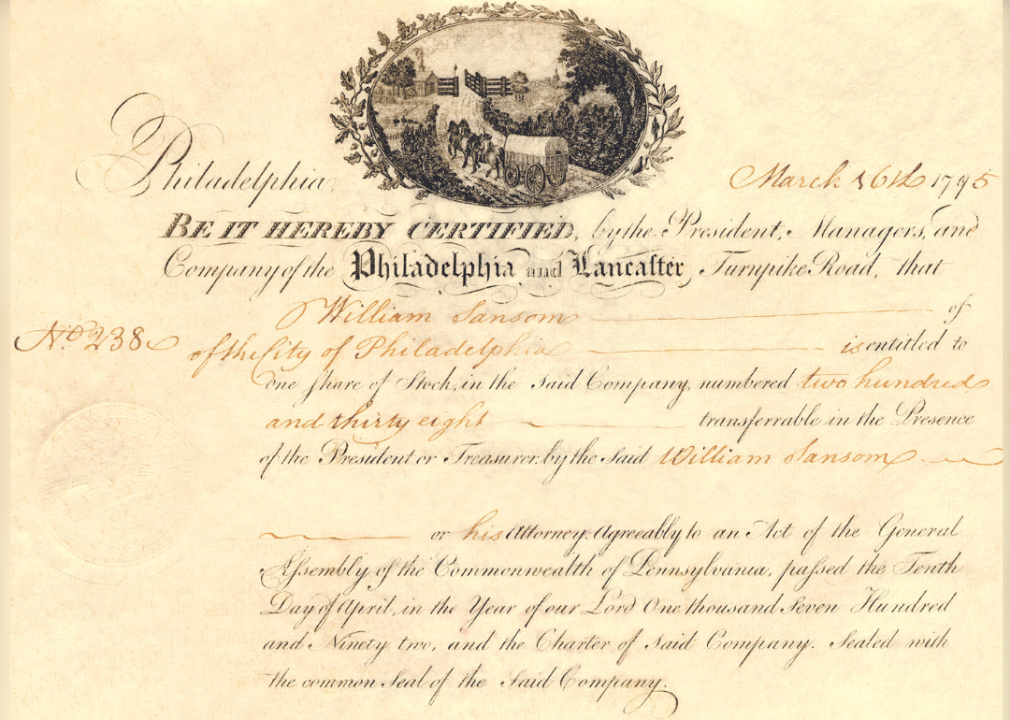 Philadelphia, March 16th 1795
BE IT HEREBY CERTIFIED, by the President, Managers, and
Company of the Philadelphia and Lancaster Turnpike Road, that
William Sansom of
No. 238 of the City of Philadelphia is entitled to
one Share of Stock, in the said Company, numbered two hundred
and thirty eight transferrable in the Presence
of the President or Treasurer by the said William Sansom
or his Attorney. Agreeably to an Act of the General
Assembly of the Commonwealth of Pennsylvania, passed the Tenth
Day of April, in the Year of our Lord One thousand Seven Hundred
and Ninety two, and the Charter of said Company. Sealed with
the common Seal of the said Company.